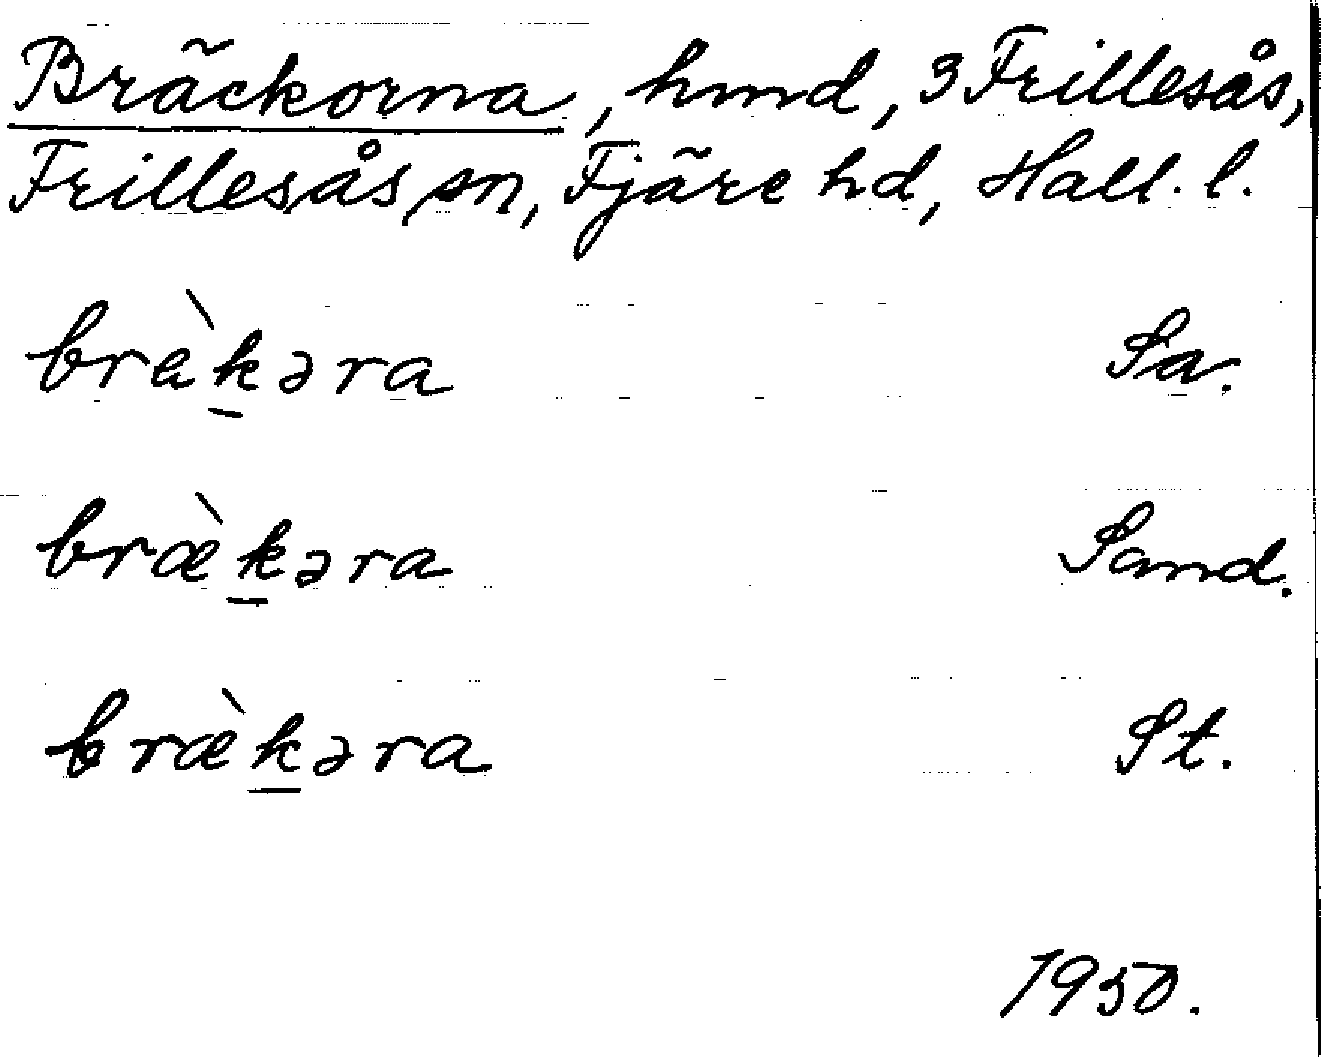 Bräckorna, hmd, 3 Frillesås,
Frillesås sn, Fjäre hd, Hall. l.
bràk̲əra Sa.
bræ̀k̲əra Sand.
bræ̀k̲əra St.
1950.